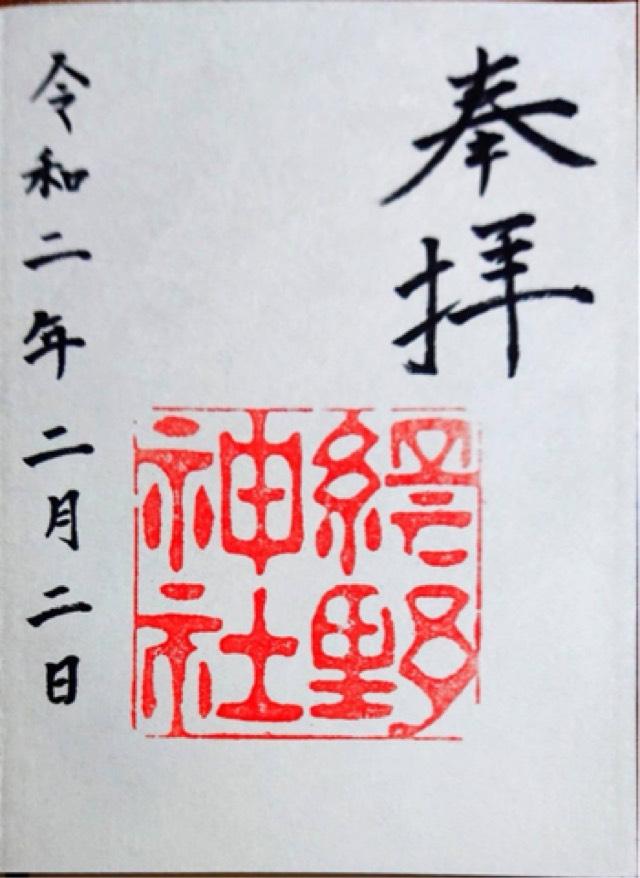 奉拝
網野
神社
令和二年二月二日